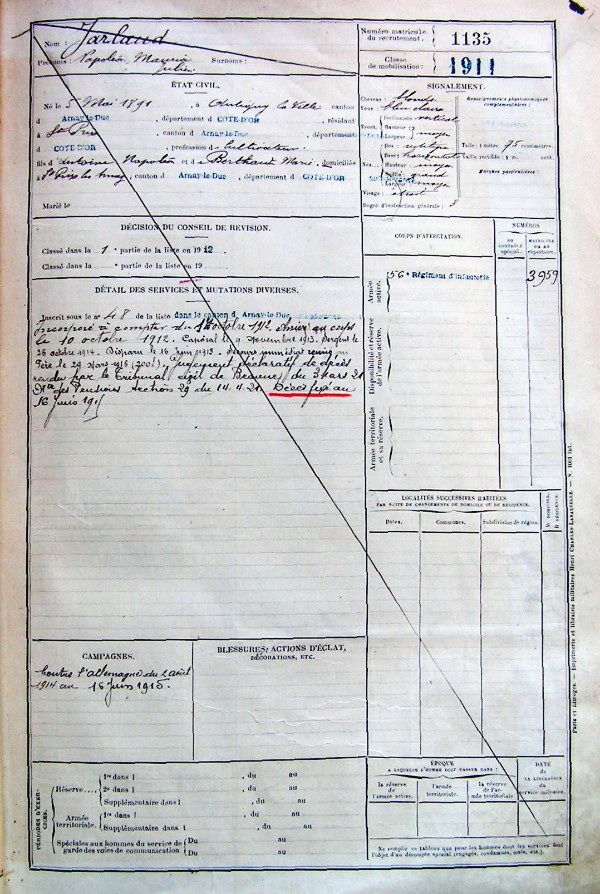 Nom : Jarlaud
Prénoms : Napoléon Maurice Julien Surnoms :
Numéro matricule du recrutement : 1135
Classe de mobilisation : 1911
ÉTAT CIVIL.
Né le 5 Mai 1891, à Aubigny la Ville canton
d Arnay-le-Duc, département d COTE-D'OR, résidant
à St Prix, canton d Arnay-le-Duc, département
d COTE-D'OR, profession d Cultivateur
fils d'Antoine Napoléon et d Berthaut Marie, domiciliés
à St Prix les Arnay, canton d Arnay-le-Duc, département d COTE-D'OR
Marié le
SIGNALEMENT.
Cheveux : blonds
Yeux : bleu clair
Front. Inclinaison : vertical
Hauteur : moyen
Largeur : moyen
Nez. Dos : rectiligne
Base : horizontale
Hauteur : moyen
Saillie : grand
Largeur : moyen
Visage :
Degré d'instruction générale : 3
Renseignements physionomiques complémentaires :
Taille : 1 mètre 75 centimètres.
Taille rectifiée : 1 m. cent.
Marques particulières :
DÉCISION DU CONSEIL DE REVISION.
Classé dans la 1e partie de la liste en 1912
Classé dans la e partie de la liste en 19
CORPS D'AFFECTATION.
NUMÉROS
DU CONTRÔLE spécial.
MATRICULE OU AU RÉPERTOIRE.
Armée active.
56e Régiment d'infanterie
3959
Disponibilité et réserve de l'armée active.
Armée territoriale et sa réserve.
DÉTAIL DES SERVICES ET MUTATIONS DIVERSES.
Inscrit sous le n° 48 de la liste dans le canton d Arnay-le-Duc
Incorporé à compter du octobre 1912. Arrivé au corps
le 10 octobre 1912. Caporal le 9 novembre 1913. Sergent le
26 octobre 1914. Disparu le 16 juin 1915. Secours immédiat remis au
Père le 29 Mars 1916 (200f). Jugement déclaratif de décès
rendu par le Tribunal civil de Beaune, du 3 Mars 21
des Pensions section 29 du 14.4.21. Décès fixé au
16 juin 1915
LOCALITÉS SUCCESSIVES HABITÉES
PAR SUITE DE CHANGEMENTS DE DOMICILE OU DE RÉSIDENCE.
Dates.
Communes.
Subdivision de région.
D. DOMICILE.
R. RÉSIDENCE.
CAMPAGNES.
Contre l'Allemagne du 2 août
1914 au 16 juin 1915.
BLESSURES, ACTIONS D'ÉCLAT,
DÉCORATIONS, ETC.
PÉRIODES D'EXERCICES.
Réserve
1re dans l , du au
2e dans l , du au
Supplémentaire dans l , du au
Armée territoriale.
1re dans l , du au
Supplémentaire dans l , du au
Spéciales aux hommes du service de garde des voies de communication
Du au
Du au
ÉPOQUE
A LAQUELLE L'HOMME DOIT PASSER DANS :
la réserve de l'armée active.
l'armée territoriale.
la réserve de l'armée territoriale
DATE
de
LA LIBÉRATION
du
service militaire.
Ne remplir ce tableau que pour les hommes dont les services font
l'objet d'un décompte spécial (engagés, condamnés, omis, etc.).
Paris et Limoges. — Imprimerie et librairie militaires Henri CHARLES-LAVAUZELLE. — N.